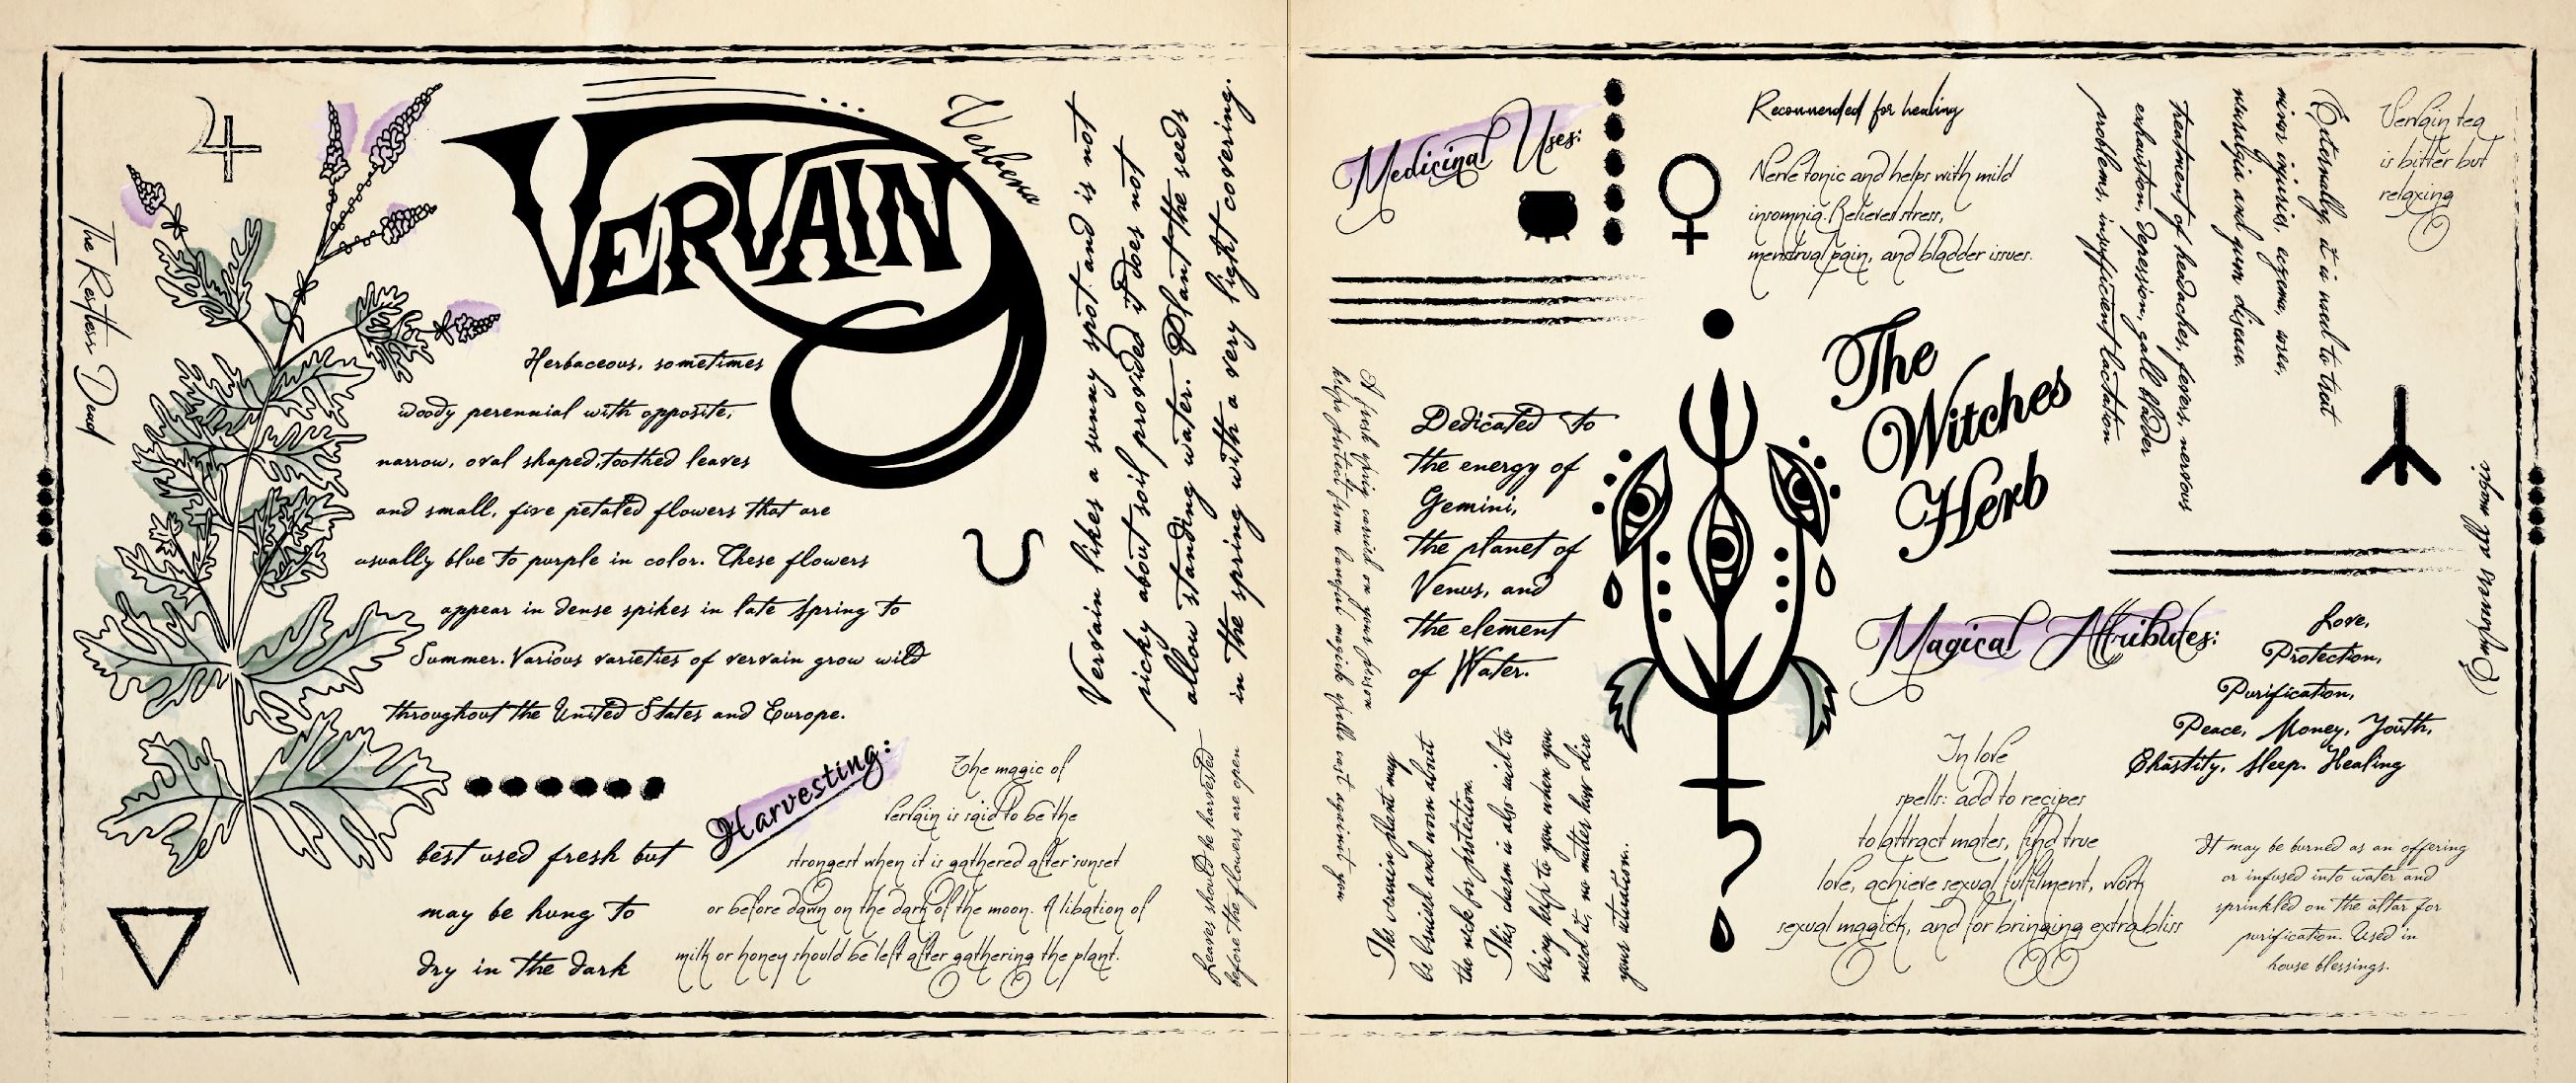 VERVAIN
Verbena
The Restless Dead
Herbaceous, sometimes
woody perennial with opposite,
narrow, oval shaped, toothed leaves
and small, five petaled flowers that are
usually blue to purple in color. These flowers
appear in dense spikes in late Spring to
Summer. Various varieties of vervain grow wild
throughout the United States and Europe.
Vervain likes a sunny spot and is not
picky about soil provided it does not
allow standing water. Plant the seeds
in the spring with a very light covering.
Harvesting:
best used fresh but
may be hung to
dry in the dark
The magic of
Vervain is said to be the
strongest when it is gathered after sunset
or before dawn on the dark of the moon. A libation of
milk or honey should be left after gathering the plant.
Leaves should be harvested
before the flowers are open
Medicinal Uses:
Recommended for healing
Nerve tonic and helps with mild
insomnia. Relieved stress,
menstrual pain, and bladder issues.
treatment of headaches, fevers, nervous
exhaustion, depression, gall bladder
problems, insufficient lactation
Externally, it is used to treat
minor injuries, eczema, sores,
neuralgia and gum disease.
Vervain tea
is bitter but
relaxing
The
Witches
Herb
Dedicated to
the energy of
Gemini,
the planet of
Venus, and
the element
of Water.
A fresh sprig carried on your person
helps protect from harmful magick spells cast against you
The vervain plant may
be bruised and worn about
the neck for protection.
This charm is also said to
bring help to you when you
need it, no matter how dire
your situation.
Magical Attributes:
Love,
Protection,
Purification,
Peace, Money, Youth,
Chastity, Sleep. Healing
In love
spells: add to recipes
to attract mates, find true
love, achieve sexual fulfilment, work
sexual magick, and for bringing extra bliss
It may be burned as an offering
or infused into water and
sprinkled on the altar for
purification. Used in
house blessings.